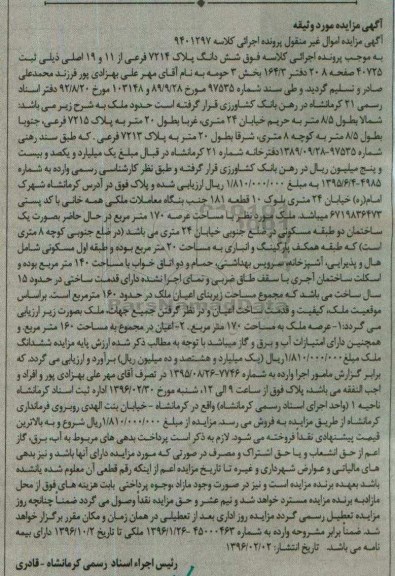 آگهی مزایده مورد وثیقه
آگهی مزایده اموال غیر منقول پرونده اجرائی کلاسه ۹۴۰۱۲۹۷
به موجب پرونده اجرائی کلاسه فوق شش دانگ پلاک ۷۲۱۴ فرعی از ۱۱ و ۱۹ اصلی ذیلی ثبت
۴۰۷۲۵ صفحه ۲۰۸ دفتر ۱۶۴/۳ بخش ۳ حومه به نام آقای مهر علی بهزادی پور فرزند محمدعلی
صادر و تسلیم گردید و طی سند شماره ۹۷۵۳۵ مورخ ۸۹/۹/۲۸ و ۱۰۳۱۴۸ مورخ ۹۲/۸/۲۰ دفتر اسناد
رسمی ۲۱ کرمانشاه در رهن بانک کشاورزی قرار گرفته است حدود ملک به شرح زیر می باشد:
شمالا بطول ۸/۵ متر به حریم خیابان ۲۴ متری، غربا بطول ۲۰ متر به پلاک ۷۲۱۵ فرعی، جنوبا
بطول ۸/۵ متر به کوچه ۸ متری، شرقا بطول ۲۰ متر به پلاک ۷۲۱۳ فرعی . که طبق سند رهنی
شماره ۹۷۵۳۵-۱۳۸۹/۰۹/۲۸ دفترخانه شماره ۲۱ کرمانشاه در قبال مبلغ یک میلیارد و یکصد و بیست
و پنج میلیون ریال در رهن بانک کشاورزی قرار گرفته و طبق نظر کارشناسی رسمی وارده به شماره
۴۹۸۵-۱۳۹۵/۶/۴ به مبلغ ۱/۸۱۰/۰۰۰/۰۰۰ ریال ارزیابی شده و پلاک فوق در آدرس کرمانشاه شهرک
امام(ره) خیابان ۲۴ متری بلوک ۱۰ قطعه ۱۸۱ جنب بنگاه معاملات ملکی همه خانی با کد پستی
۶۷۱۹۸۳۶۴۷۳ میباشد. ملک مورد نظر با مساحت عرصه ۱۷۰ متر مربع در حال حاضر بصورت یک
ساختمان دو طبقه مسکونی در ضلع جنوبی خیابان ۲۴ متری می باشد (در ضلع جنوبی کوچه ۸ متری
است) که طبقه همکف پارکینگ و انباری به مساحت ۲۰ متر مربع بوده و طبقه اول مسکونی شامل
هال و پذیرایی، آشپزخانه، سرویس بهداشتی، حمام و دو اتاق خواب با مساحت ۱۴۰ متر مربع بوده و
اسکلت ساختمان آجری با سقف طاق ضربی و نمای اجرا نشده دارای قدمت ساختی در حدود ۱۵
سال ساخت می باشد که مجموع مساحت زیربنای اعیان ملک در حدود ۱۶۰ مترمربع است. براساس
موقعیت ملک، کیفیت و قدمت ساخت اعیان و در نظر گرفتن جمیع جهات، ملک بصورت زیر ارزیابی
می گردد:۱-عرصه ملک به مساحت ۱۷۰ متر مربع. ۲-اعیان در مجموع به مساحت ۱۶۰ متر مربع. و
همچنین دارای امتیازات آب و برق و گاز میباشد با توجه به مطالب ذکر شده ارزش پایه مزایده ششدانگ
ملک مبلغ ۱/۸۱۰/۰۰۰/۰۰۰ ریال (یک میلیارد و هشتصد و ده میلیون ریال) برآورد و ارزیابی می گردد که
برابر گزارش مامور اجرا وارده به شماره ۷۷۴۶-۱۳۹۵/۰۸/۲۶ در تصرف آقای مهر علی بهزادی پور و افراد و
اجب النفقه می باشد، پلاک فوق از ساعت ۹ الی ۱۲، شنبه مورخ ۱۳۹۶/۰۲/۳۰ اداره ثبت اسناد کرمانشاه
ناحیه ۱ (واحد اجرای اسناد رسمی کرمانشاه) واقع در کرمانشاه - خیابان بنت الهدی روبروی فرمانداری
کرمانشاه از طریق مزایده به فروش می رسد. مزایده از مبلغ ۱/۸۱۰/۰۰۰/۰۰۰ ریال شروع و به بالاترین
قیمت پیشنهادی نقداً فروخته می شود. لازم به ذکر است پرداخت بدهی های مربوط به آب، برق، گاز
اعم از حق انشعاب و یا حق اشتراک و مصرف در صورتی که مورد مزایده دارای آنها باشد و نیز بدهی
های مالیاتی و عوارض شهرداری و غیره تا تاریخ مزایده اعم از اینکه رقم قطعی آن معلوم شده یانشده
باشد بعهده برنده مزایده است و نیز در صورت وجود مازاد، بوجوه پرداختی بابت هزینه های فوق از محل
مازادبه برنده مزایده مسترد خواهد شد و نیم عشر و حق مزایده نقداً وصول می گردد ضمناً چنانچه روز
مزایده تعطیل رسمی گردد مزایده روز اداری بعد از تعطیلی در همان زمان و مکان مقرر برگزار خواهد
شد. ضمناً برابر مشروحه وارده به شماره ۴۵۰۰۰۴۶۳-۱۳۹۶/۱/۲۶ ملکی تا تاریخ ۱۳۹۶/۱۰/۲ دارای بیمه
نامه می باشد. تاریخ انتشار: ۱۳۹۶/۰۲/۰۲
رئیس اجراء اسناد رسمی کرمانشاه - قادری